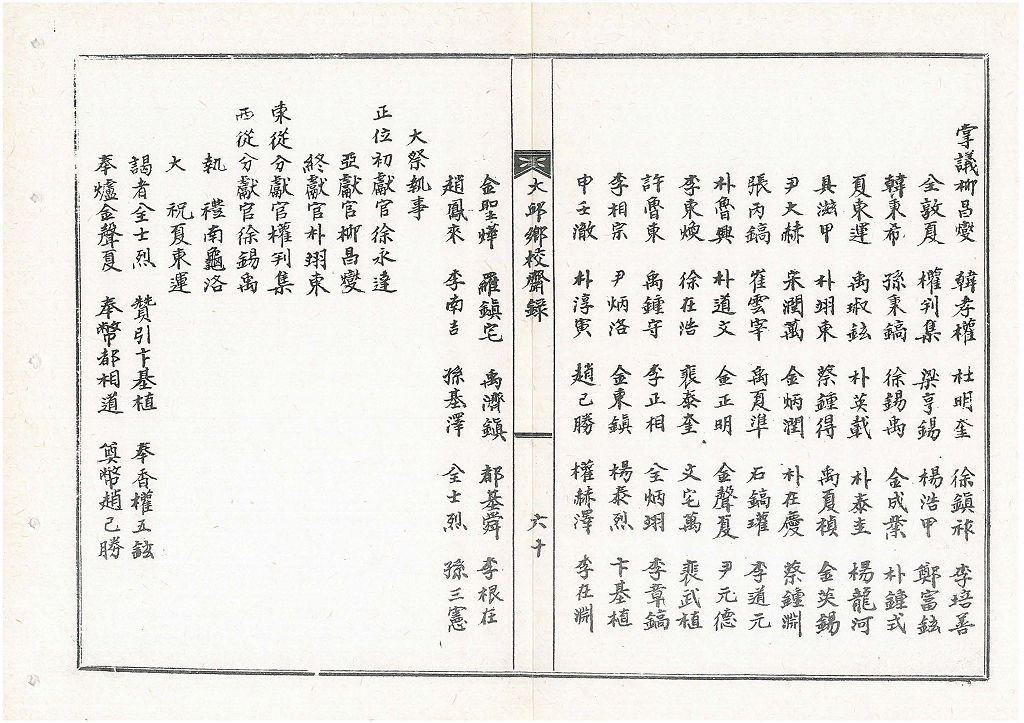 掌議柳昌燮 韓孝權 杜明奎 徐鎮祿 李培善
全敦夏 權刋集 梁亨錫 楊浩甲 鄭富鉉
韓東希 孫秉鎬 徐錫禹 金成業 朴鍾式
夏東運 禹淑鉉 朴英載 朴泰圭 楊龍河
具滋甲 朴翊東 蔡鍾得 禹夏楨 金英錫
尹大赫 宋潤萬 金炳潤 朴在慶 蔡鍾淵
張丙鎬 崔雲宰 禹夏準 石鎬瓘 李道元
朴魯興 朴道文 金正明 金聲夏 尹元德
李東煥 徐在浩 裵泰奎 文宅萬 裵武植
許魯東 禹鍾守 李正相 全炳翊 李章鎬
李相宗 尹炳洛 金東鎮 楊泰烈 卞基植
申壬澈 朴淳寅 趙己勝 權赫澤 李在淵
大邱鄉校齋錄
六十
金聖燁 羅鎮宅 禹濟鎮 都基舜 李根在
趙鳳來 李南吉 孫基澤 全士烈 孫三憲
大祭執事
正位初獻官徐永達
亞獻官柳昌燮
終獻官朴翊東
東從分獻官權刋集
西從分獻官徐錫禹
執 禮南龜洛
大 祝夏東運
謁者全士烈 贊引卞基植 奉香權五鉉
奉爐金聲夏 奉幣都相道 奠幣趙己勝